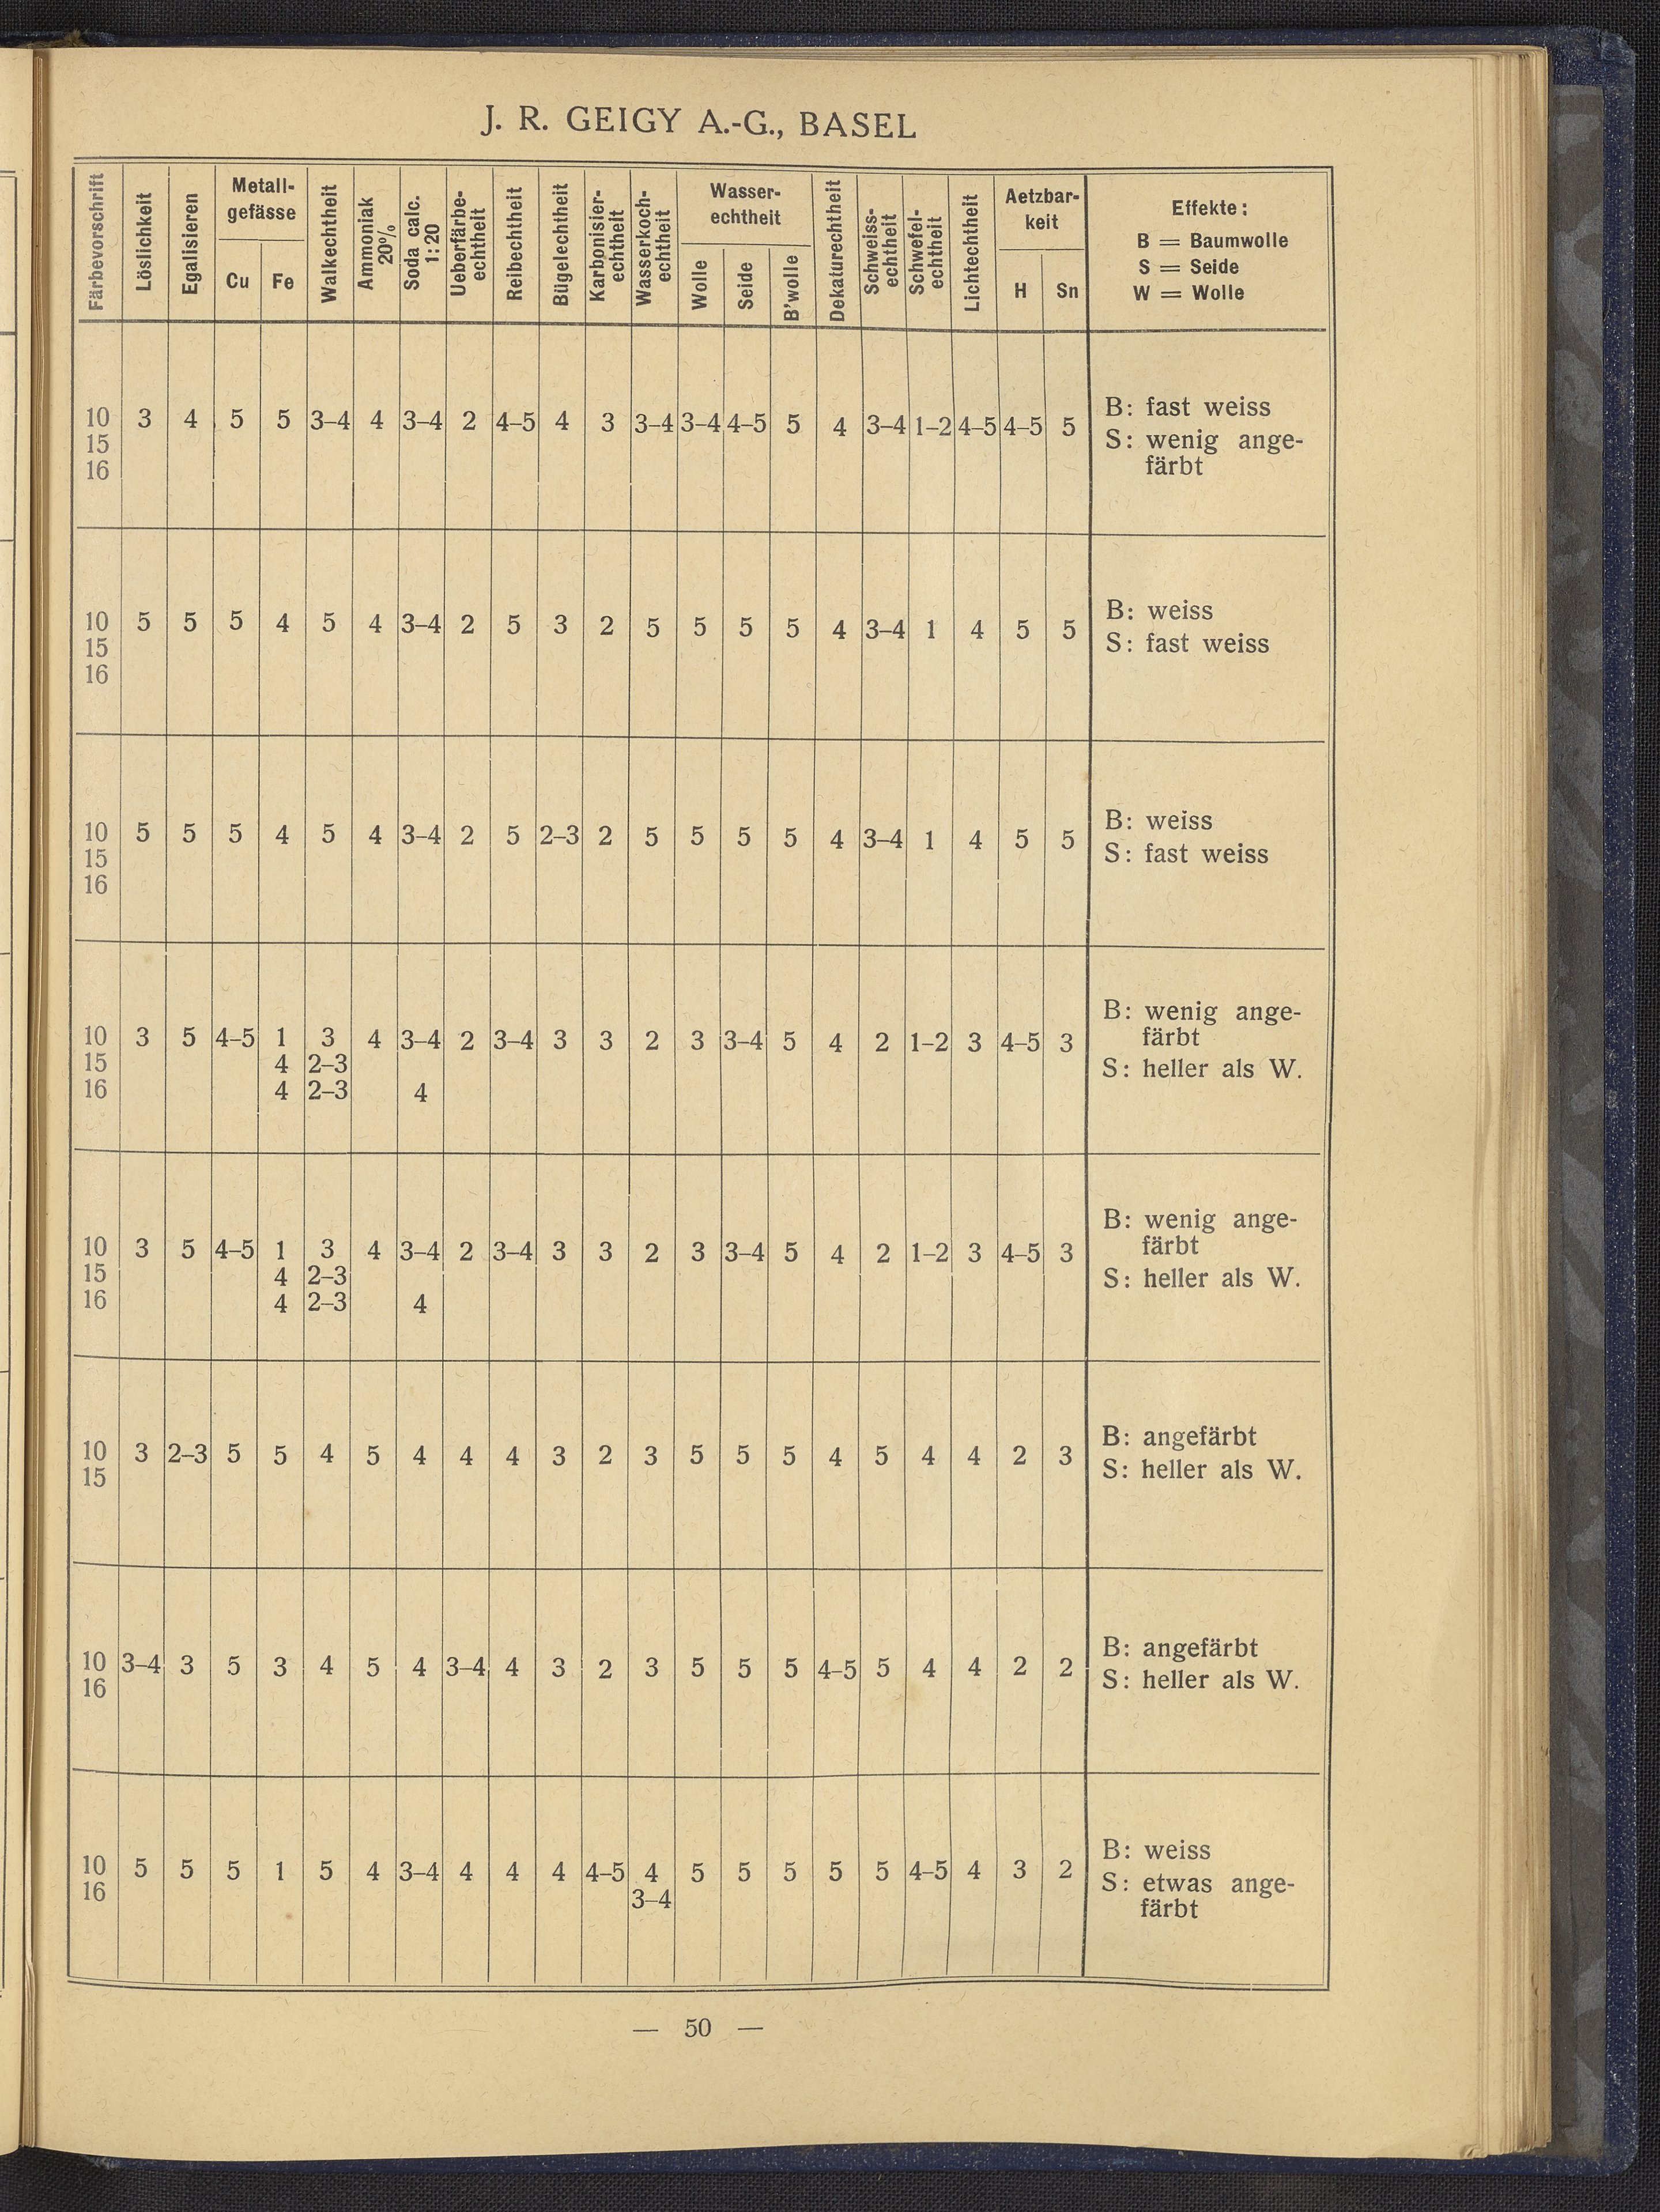 J. R. GEIGY A.-G., BASEL
Färbevorschrift
Löslichkeit
Egalisieren
Metall-
gefässe
Cu Fe
Walkechtheit
Ammoniak
20%
Soda calc.
1:20
Ueberfärbe-
echtheit
Reibechtheit
Bügelechtheit
Karbonisier-
echtheit
Wasserkoch-
echtheit
Wasser-
echtheit
Wolle
Seide
B'wolle
Dekaturechtheit
Schweiss-
echtheit
Schwefel-
echtheit
Lichtechtheit
Aetzbar-
keit
H Sn
Effekte:
B = Baumwolle
S = Seide
W = Wolle
10 3 4 5 5 3–4 4 3–4 2 4–5 4 3 3–4 3–4 4–5 5 4 3–4 1–2 4–5 4–5 5 B: fast weiss
15 S: wenig ange-
16 färbt
10 5 5 5 4 5 4 3–4 2 5 3 2 5 5 5 5 4 3–4 1 4 5 5 B: weiss
15 S: fast weiss
16
10 5 5 5 4 5 4 3–4 2 5 2–3 2 5 5 5 5 4 3–4 1 4 5 5 B: weiss
15 S: fast weiss
16
10 3 5 4–5 1 3 4 3–4 2 3–4 3 3 2 3 3–4 5 4 2 1–2 3 4–5 3 B: wenig ange-
färbt
15 4 2–3 S: heller als W.
16 4 2–3 4
10 3 5 4–5 1 3 4 3–4 2 3–4 3 3 2 3 3–4 5 4 2 1–2 3 4–5 3 B: wenig ange-
färbt
15 4 2–3 S: heller als W.
16 4 2–3 4
10 3 2–3 5 5 4 5 4 4 4 3 2 3 5 5 5 4 5 4 4 2 3 B: angefärbt
15 S: heller als W.
10 3–4 3 5 3 4 5 4 3–4 4 3 2 3 5 5 5 4–5 5 4 4 2 2 B: angefärbt
16 S: heller als W.
10 5 5 5 1 5 4 3–4 4 4 4 4–5 4 5 5 5 5 5 4–5 4 3 2 B: weiss
16 3–4 S: etwas ange-
färbt
— 50 —